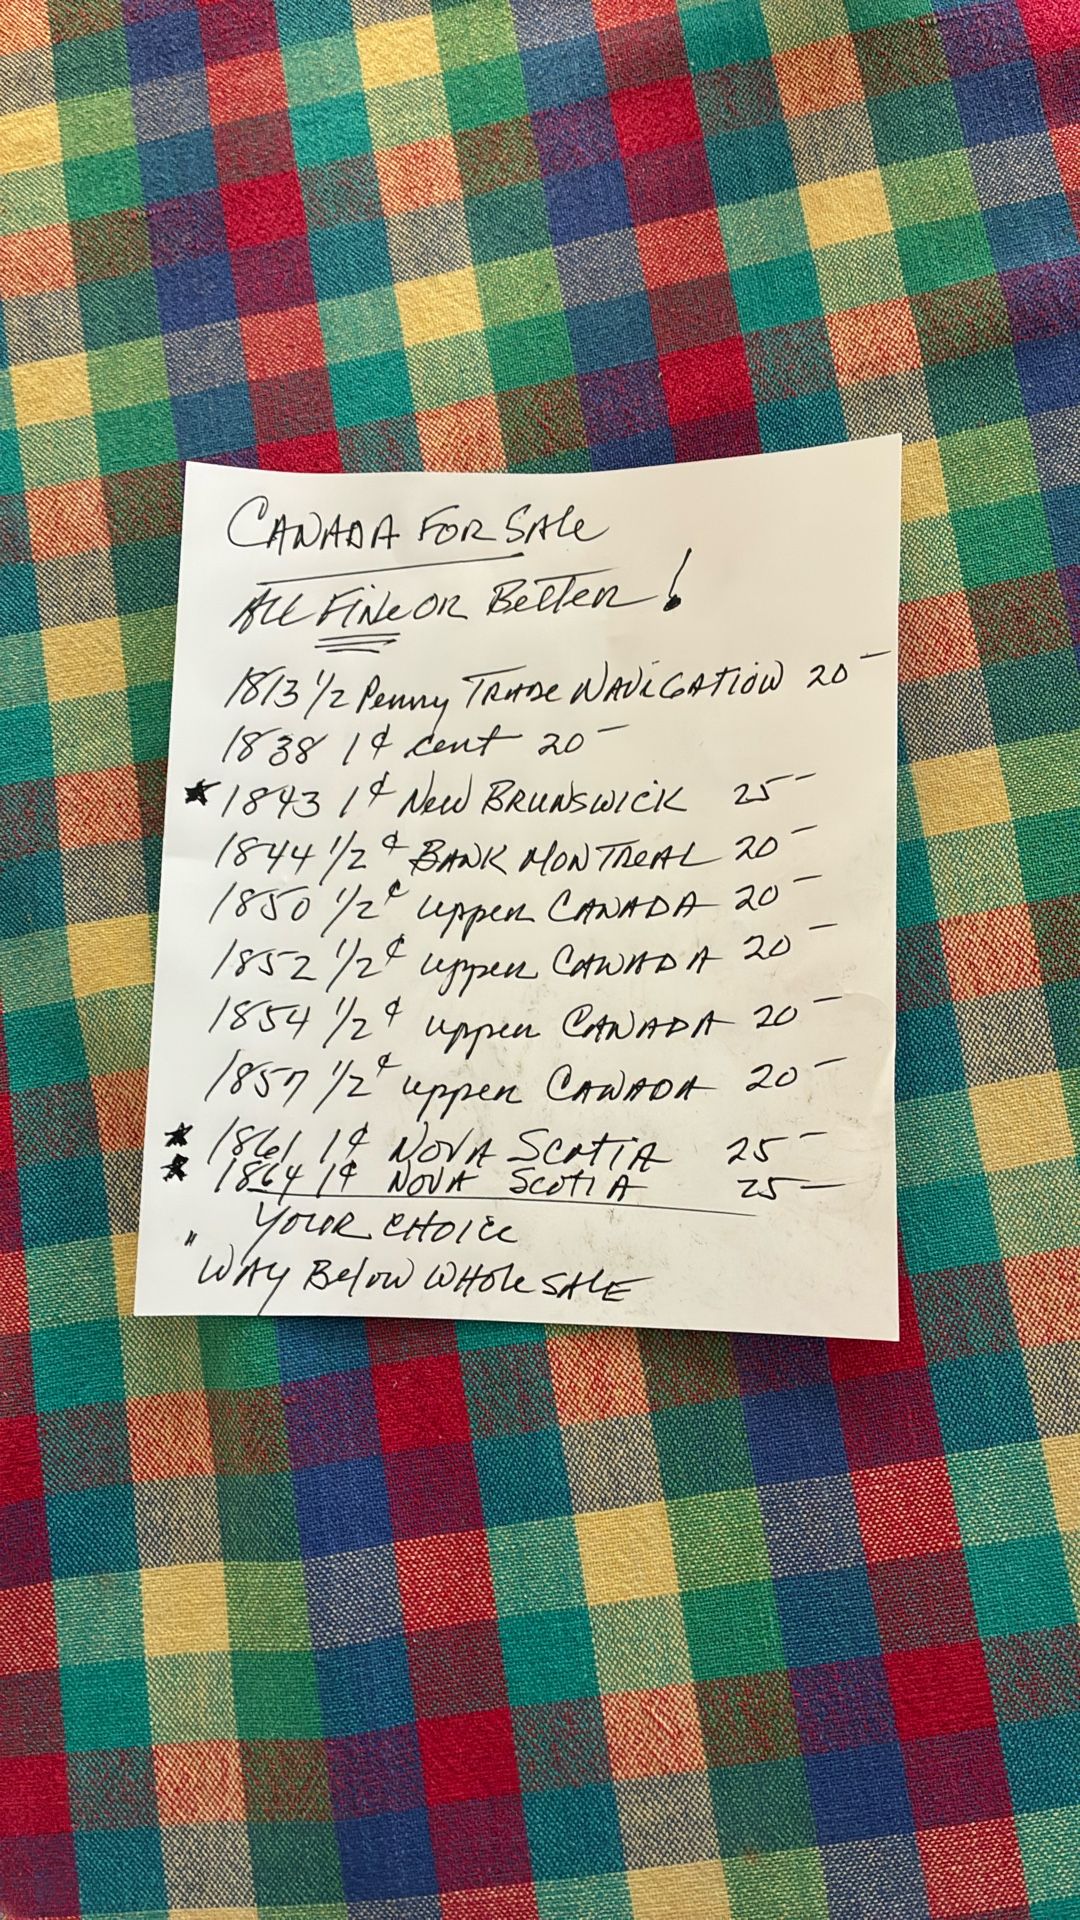 CANADA FOR SALE
ALL FINE OR BETTER!
1813 1/2 Penny TRADE NAVIGATION 20-
1838 1¢ cent 20-
★ 1843 1¢ New BRUNSWICK 25-
1844 1/2¢ BANK MONTREAL 20-
1850 1/2¢ upper CANADA 20-
1852 1/2¢ upper CANADA 20-
1854 1/2¢ upper CANADA 20-
1857 1/2¢ upper CANADA 20-
★ 1861 1¢ NOVA SCOTIA 25-
★ 1864 1¢ NOVA SCOTIA 25-
YOUR CHOICE
"WAY Below WHOLESALE